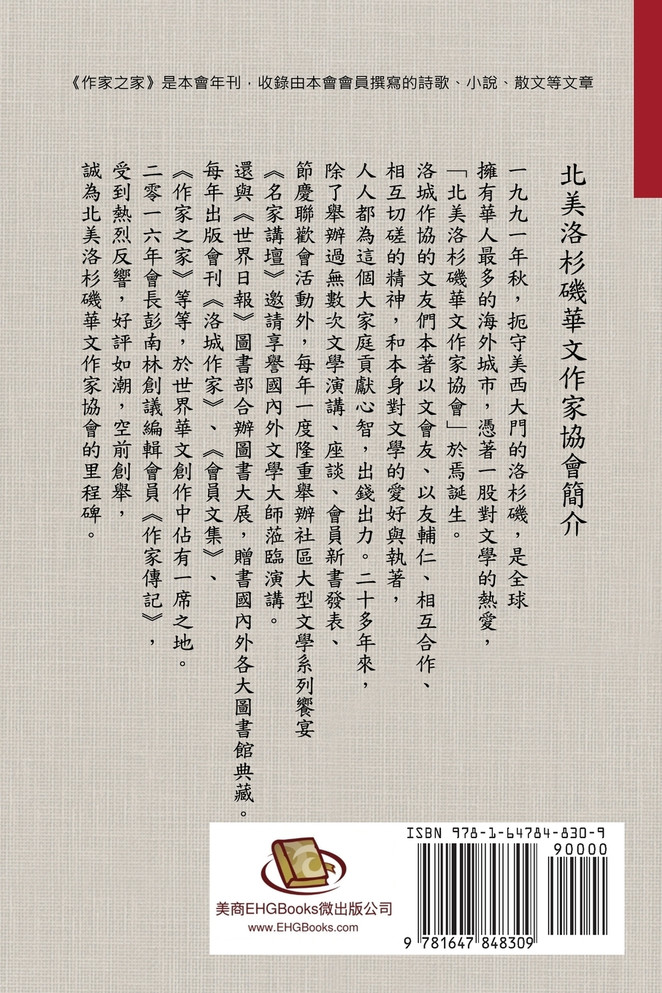 《作家之家》是本會年刊，收錄由本會會員撰寫的詩歌、小說、散文等文章
北美洛杉磯華文作家協會簡介
一九九一年秋，扼守美西大門的洛杉磯，是全球
擁有華人最多的海外城市，憑著一股對文學的熱愛，
「北美洛杉磯華文作家協會」於焉誕生。
洛城作協的文友們本著以文會友、以友輔仁、相互合作、
相互切磋的精神，和本身對文學的愛好與執著，
人人都為這個大家庭貢獻心智，出錢出力。二十多年來，
除了舉辦過無數次文學演講、座談、會員新書發表、
節慶聯歡會活動外，每年一度隆重舉辦社區大型文學系列饗宴
《名家講壇》邀請享譽國內外文學大師蒞臨演講。
還與《世界日報》圖書部合辦圖書大展，贈書國內外各大圖書館典藏。
每年出版會刊《洛城作家》、《會員文集》、
《作家之家》等等，於世界華文創作中佔有一席之地。
二零一六年會長彭南林創議編輯會員《作家傳記》，
受到熱烈反響，好評如潮，空前創舉，
誠為北美洛杉磯華文作家協會的里程碑。
美商EHGBooks微出版公司
www.EHGBooks.com
ISBN 978-1-64784-830-9
90000
9 781647 848309